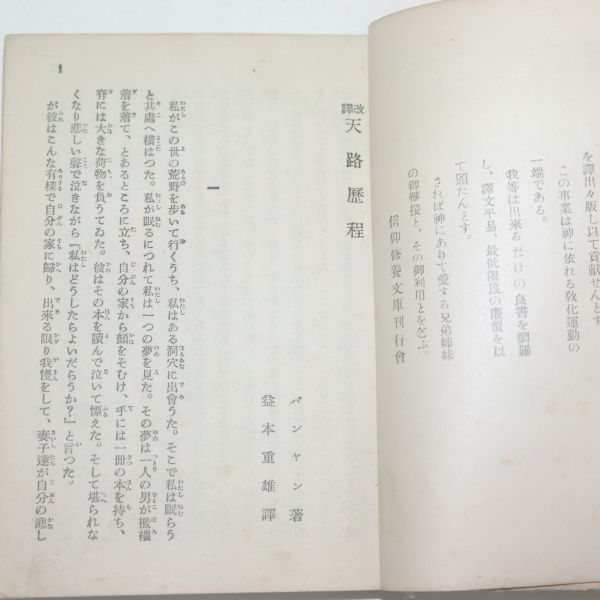 を譯出々版し以て貢献せんとす
この事業は神に依れる敎化運動の
一端である。
我等は出來るだけの良書を網羅
し、譯文平易、最低限度の廉價を以
て頒たんとす。
されば神にありて愛する兄弟姉妹
の御後援と、その御利用とを乞ふ。
信仰修養文庫刊行會
改譯 天路歷程
バンヤン著
益本重雄譯
一
私がこの世の荒野を步いて行くうち、私はある洞穴に出會うた。そこで私は眠らう
と其處へ橫はつた。私が眠るにつれて私は一つの夢を見た。その夢は一人の男が襤褸
着を着て、とあるところに立ち、自分の家から顏をそむけ、手には一冊の本を持ち、
脊には大きな荷物を負うてゐた。彼はその本を讀んで泣いて慄えた。そして堪られな
くなり悲しい聲で泣きながら『私はどうしたらよいだらうか?』と言つた。
が彼はこんな有樣で自分の家に歸り、出來る限り我慢をして、妻子達が自分の悲し
1